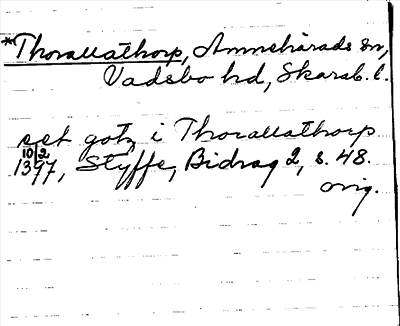 *Thorallathorp, Amnehärads sn,
Vadsbo hd, Skarab. l.
set gotz i Thorallathorp
10/2
1377, Styffe, Bidrag 2, s. 48.
orig.